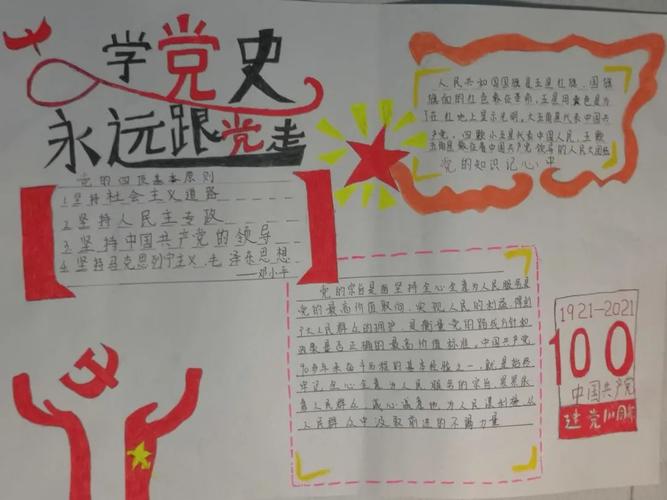 学党史
永远跟党走
党的四项基本原则
1.坚持社会主义道路
2.坚持人民主专政
3.坚持中国共产党的领导
4.坚持马克思列宁主义、毛泽东思想
——邓小平
人民共和国国旗是五星红旗,国旗
旗面的红色象征革命,五星用黄色是为
了在红地上显示光明,大五角星代表中国共
产党,四颗小五星代表中国人民,五颗
五角星象征着中国共产党领导的人民大团结
党的知识记心中
党的宗旨是坚持全心全意为人民服务是
党的最高价值取向,实现人民的利益,得到
大人民群众的拥护,是衡量党的路线方针和
政策是否正确的最高价值标准,中国共产党
90多年来奋斗历程的基本经验之一,就是始终
牢记全心全意为人民服务的宗旨,紧紧依
靠人民群众,诚心诚意地为人民谋利益,从
人民群众中汲取前进的不竭力量
1921-2021
100
中国共产党
建党100周年